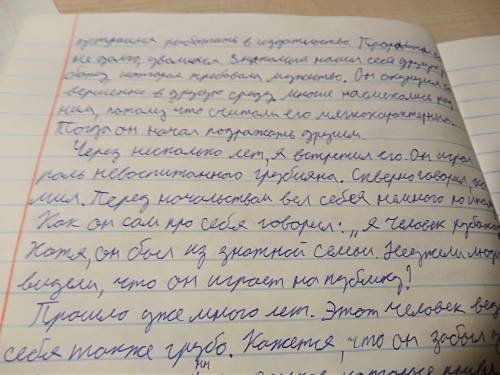 устроился работать в издательство. Проработа
не долго, уволился. Знакомый нашел себе другую р
боту, которая требовала мужество. Он окунулся со
вершенно в другую среду, многие насмехались над
ним, потому что считали его мягкохарактерным.
Тогда он начал подражать другим.
Через несколько лет, я встретил его. Он играл
роль невоспитанного грубияна. Скверно говорил,
мил. Перед начальством вел себея немного по ина
Как он сам про себя говорил: „Я человек рубаха
Хотя, он был из знатной семьи. Неужели люди
видели, что он играет на публику?
Прошло уже много лет. Этот человек вед
себя также грубо. Кажется, что он забыл
нн
которая